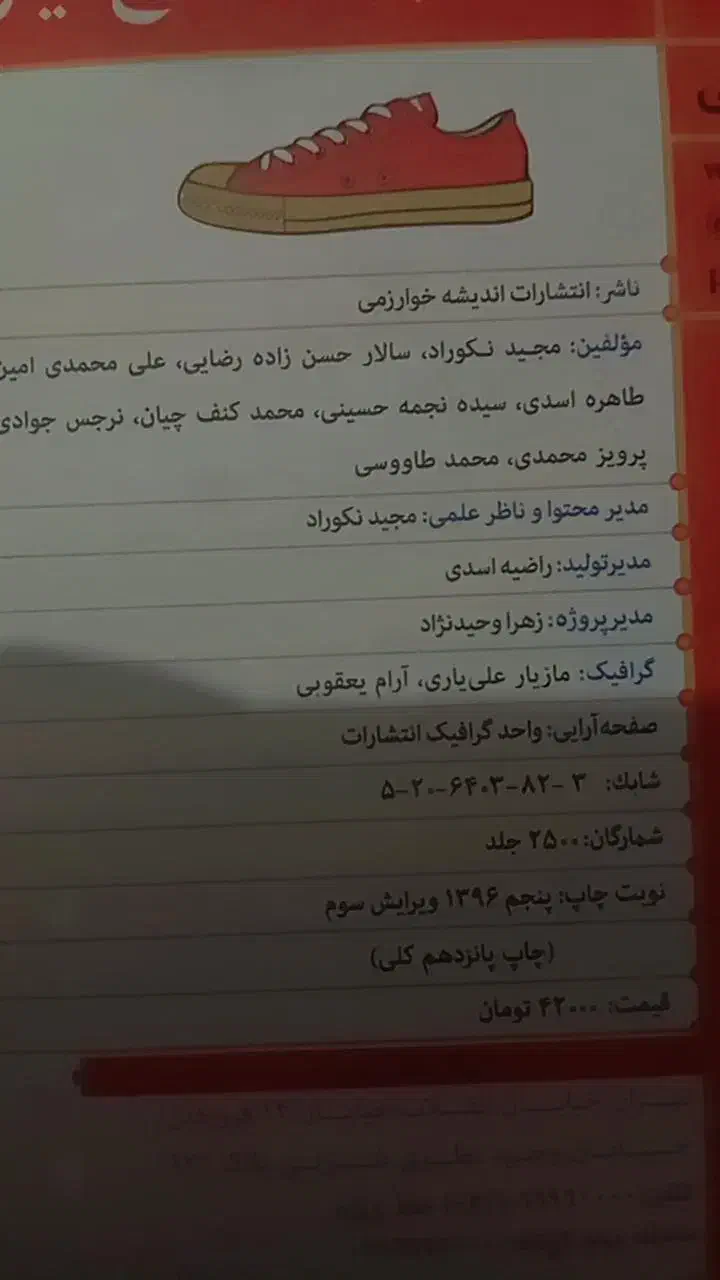 ناشر: انتشارات اندیشه خوارزمی
مؤلفین: مجید نکوراد، سالار حسن زاده رضایی، علی محمدی امین
طاهره اسدی، سیده نجمه حسینی، محمد کنف چیان، نرجس جوادی
پرویز محمدی، محمد طاووسی
مدیر محتوا و ناظر علمی: مجید نکوراد
مدیرتولید: راضیه اسدی
مدیرپروژه: زهرا وحیدنژاد
گرافیک: مازیار علی‌یاری، آرام یعقوبی
صفحه‌آرایی: واحد گرافیک انتشارات
شابك: ۳ -۸۲-۶۴۰۳-۲۰-۵
شمارگان: ۲۵۰۰ جلد
نوبت چاپ: پنجم ۱۳۹۶ ویرایش سوم
(چاپ پانزدهم کلی)
قیمت: ۴۲۰۰۰ تومان